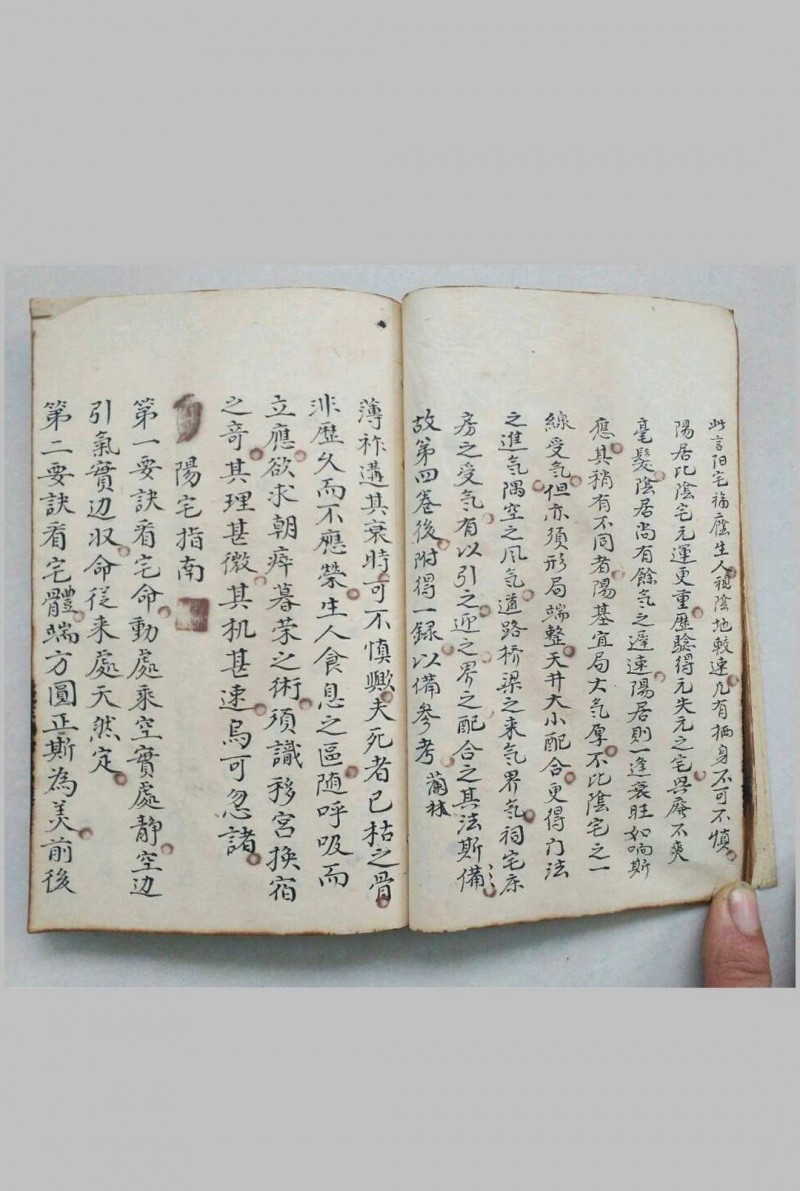 此言阳宅福廕生人視陰地較速凡有栖身不可不慎
陽居比陰宅元運更重歷驗得元失元之宅興廢不爽
毫髮陰居尚有餘気之遲速陽居則一逢衰旺如响斯
應其稍有不同者陽基宜局大気厚不比陰宅之一
線受気但亦须形局端整天井大小配合更得门法
之進気隅空之风気道路桥梁之来気界気祠宅床
房之受気有以引之迎之界之配合之其法斯備
故第四卷後附得一録以備參考 蘭林
薄祚遘其衰時可不慎歟夫死者已枯之骨
非歷久而不應榮生人食息之區随呼吸而
立應欲求朝瘁暮荣之術須識移宮換宿
之奇其理甚微其机甚速烏可忽諸
陽宅指南
第一要訣看宅命動處乘空實處靜空边
引氣實边収命従来處天然定
第二要訣看宅體端方圓正斯為美前後